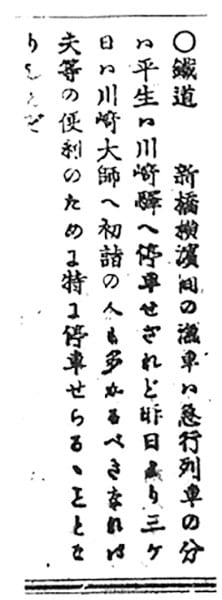 〇鐵道　新橋横濱間の滊車ハ急行列車の分
ハ平生ハ川崎驛へ停車せざれど昨日より三ケ
日ハ川崎大師へ初詣の人も多かるべきなれば
夫等の便利のために特に停車せらるゝことと
なりしと